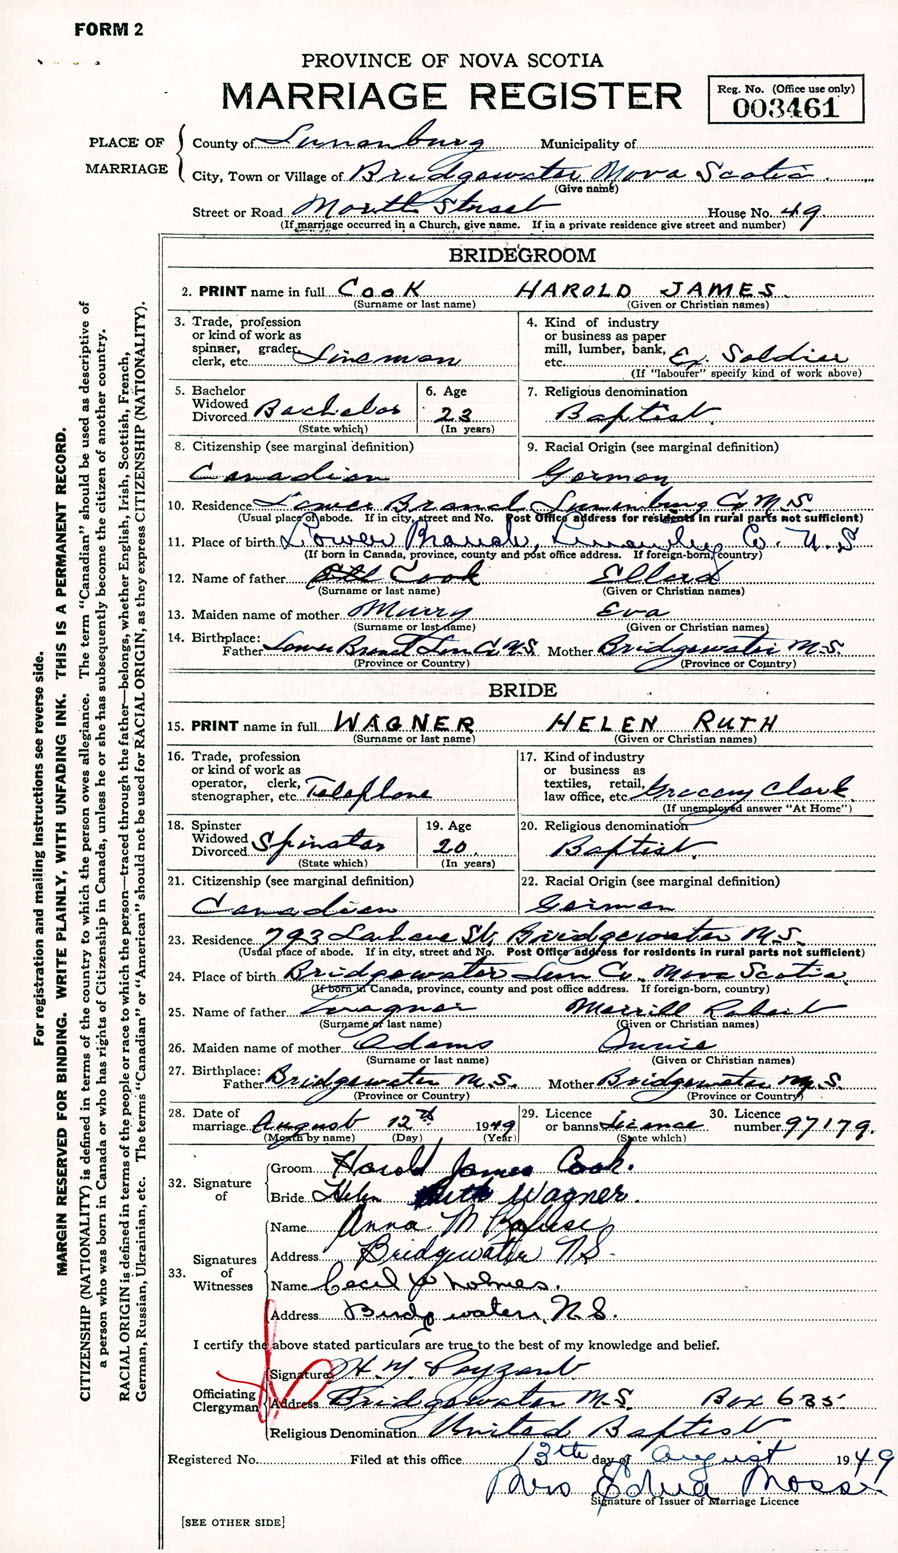 FORM 2
PROVINCE OF NOVA SCOTIA
MARRIAGE REGISTER
Reg. No. (Office use only)
003461
PLACE OF MARRIAGE
County of Lunenburg Municipality of
City, Town or Village of Bridgewater Nova Scotia
(Give name)
Street or Road North Street House No. 49
(If marriage occurred in a Church, give name. If in a private residence give street and number)
BRIDEGROOM
2. PRINT name in full COOK HAROLD JAMES.
(Surname or last name) (Given or Christian names)
3. Trade, profession or kind of work as spinner, grader, clerk, etc. Lineman
4. Kind of industry or business as paper mill, lumber, bank, etc. Ex. Soldier
(If "labourer" specify kind of work above)
5. Bachelor Widowed Divorced Bachelor
(State which)
6. Age 23
(In years)
7. Religious denomination
Baptist.
8. Citizenship (see marginal definition)
Canadian
9. Racial Origin (see marginal definition)
German
10. Residence Lower Branch Lunenburg Co N.S.
(Usual place of abode. If in city, street and No. Post Office address for residents in rural parts not sufficient)
11. Place of birth Lower Branch, Lunenburg Co. N.S
(If born in Canada, province, county and post office address. If foreign-born, country)
12. Name of father Cook Ellard
(Surname or last name) (Given or Christian names)
13. Maiden name of mother Murry Eva
(Surname or last name) (Given or Christian names)
14. Birthplace:
Father Lower Branch Lun Co N.S. Mother Bridgewater N.S.
(Province or Country) (Province or Country)
BRIDE
15. PRINT name in full WAGNER HELEN RUTH
(Surname or last name) (Given or Christian names)
16. Trade, profession or kind of work as operator, clerk, stenographer, etc. Telephone
17. Kind of industry or business as textiles, retail, law office, etc. Grocery Clerk.
(If unemployed answer "At Home")
18. Spinster Widowed Divorced Spinster
(State which)
19. Age 20.
(In years)
20. Religious denomination
Baptist.
21. Citizenship (see marginal definition)
Canadian
22. Racial Origin (see marginal definition)
German
23. Residence 793 Lahave St, Bridgewater N.S.
(Usual place of abode. If in city, street and No. Post Office address for residents in rural parts not sufficient)
24. Place of birth Bridgewater Lun Co. Nova Scotia
(If born in Canada, province, county and post office address. If foreign-born, country)
25. Name of father Wagner Merrill Robert
(Surname or last name) (Given or Christian names)
26. Maiden name of mother Adams Annie
(Surname or last name) (Given or Christian names)
27. Birthplace:
Father Bridgewater N.S. Mother Bridgewater N.S.
(Province or Country) (Province or Country)
28. Date of marriage August 12th 1949
(Month by name) (Day) (Year)
29. Licence or banns Licence
(State which)
30. Licence number 97179.
32. Signature of
Groom Harold James Cook.
Bride Helen Ruth Wagner.
33. Signatures of Witnesses
Name Anna M
Address Bridgewater N.S.
Name Cecil Holmes.
Address Bridgewater, N.S.
I certify the above stated particulars are true to the best of my knowledge and belief.
Officiating Clergyman
Signature H. Y. Payzant
Address Bridgewater N.S. Box 685
Religious Denomination United Baptist
Registered No. Filed at this office 13th day of August 1949
Mrs Edna Mosse
Signature of Issuer of Marriage Licence
[SEE OTHER SIDE]
For registration and mailing instructions see reverse side.
MARGIN RESERVED FOR BINDING. WRITE PLAINLY, WITH UNFADING INK. THIS IS A PERMANENT RECORD.
CITIZENSHIP (NATIONALITY) is defined in terms of the country to which the person owes allegiance. The term "Canadian" should be used as descriptive of
a person who was born in Canada or who has rights of Citizenship in Canada, unless he or she has subsequently become the citizen of another country.
RACIAL ORIGIN is defined in terms of the people or race to which the person—traced through the father—belongs, whether English, Irish, Scottish, French,
German, Russian, Ukrainian, etc. The terms "Canadian" or "American" should not be used for RACIAL ORIGIN, as they express CITIZENSHIP (NATIONALITY).